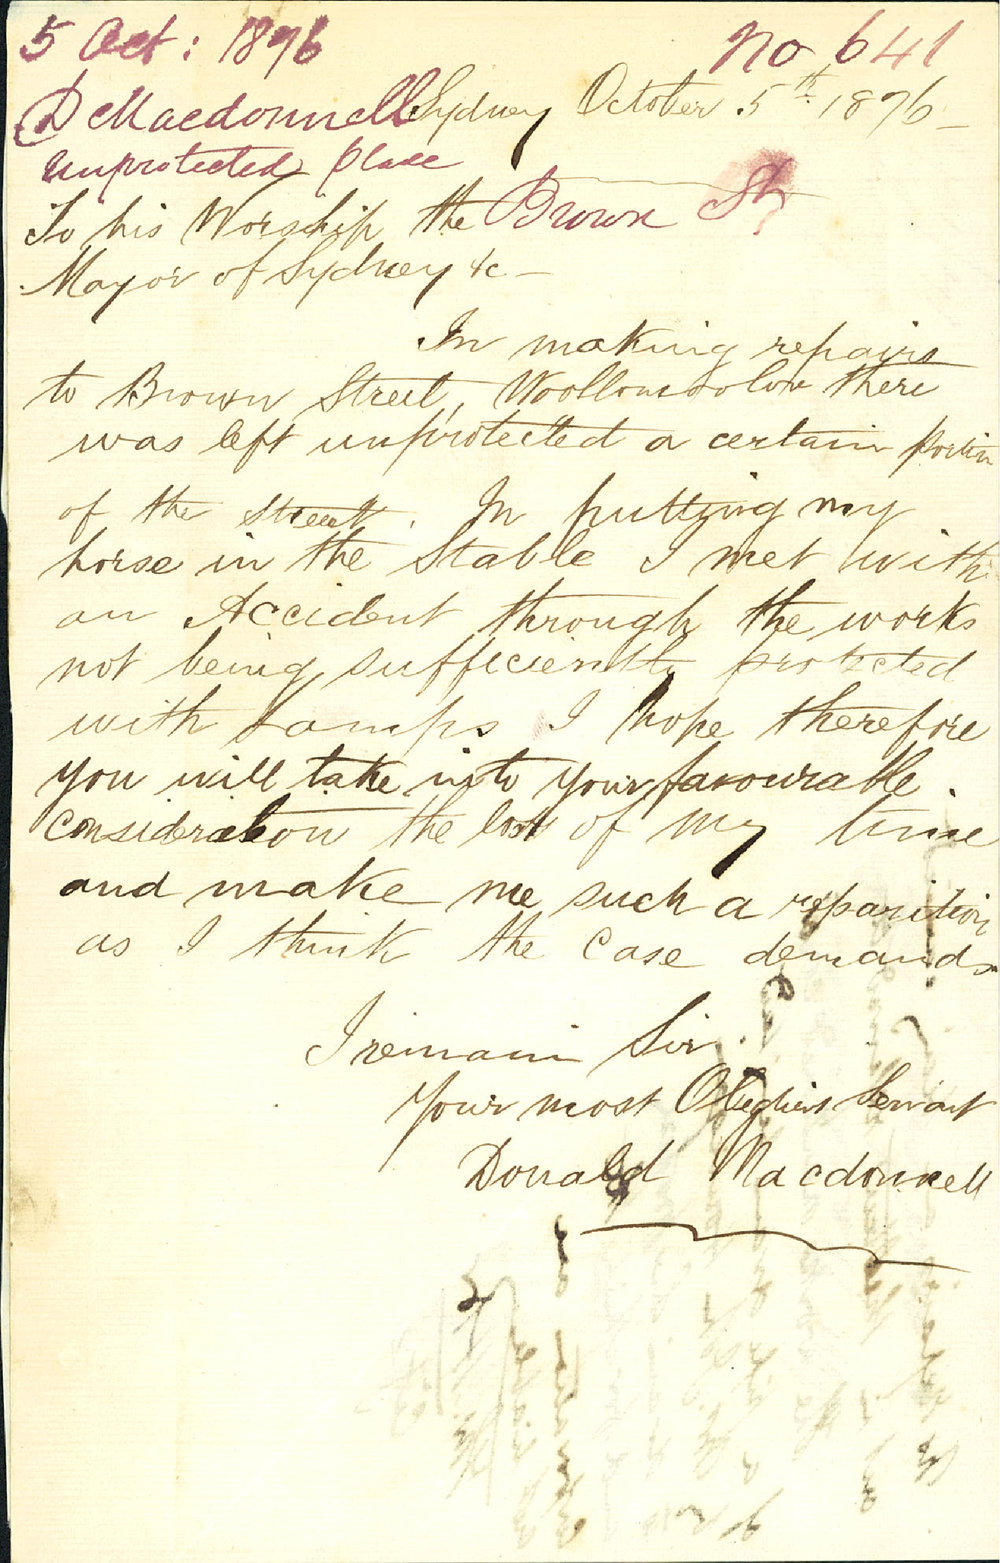 5 Oct: 1876
No 641
D Macdonnell
unprotected place
Brown St
Sydney October 5th 1876
To his Worship the
Mayor of Sydney &c -
In making repairs
to Brown Street, Woolloomooloo there
was left unprotected a certain portion
of the street. In putting my
horse in the Stable I met with
an Accident through the works
not being sufficiently protected
with Lamps I hope therefore
you will take into your favourable
consideration the loss of my time
and make me such a reparition
as I think the Case demands
I remain Sir
Your most Obedient Servant
Donald Macdonnell